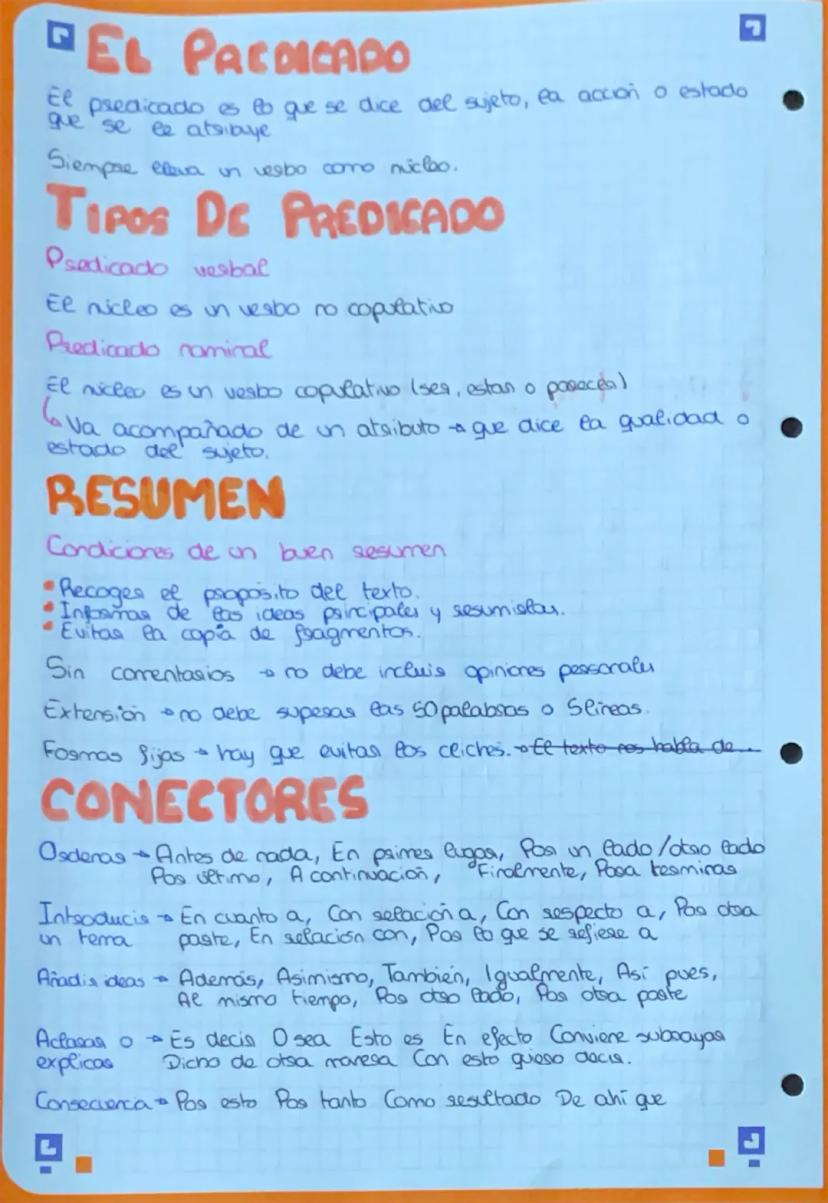 EL PREDICADO
El predicado es lo que se dice del sujeto, la acción o estado
que se le atribuye
Siempre lleva un verbo como núcleo.
TIPOS DE PREDICADO
Predicado verbal
El núcleo es un verbo no copulativo
Predicado nominal
El núcleo es un verbo copulativo (ser, estar o parecer)
↳ Va acompañado de un atributo → que dice la qualidad o
estado del sujeto.
RESUMEN
Condiciones de un buen resumen
• Recoger el proposito del texto.
• Informar de las ideas principales y resumirlas.
• Evitar la copia de fragmentos.
Sin comentarios → no debe incluir opiniones personales
Extensión → no debe superar las 50 palabras o 5 lineas.
Formas fijas → hay que evitar los cliches. → El texto nos habla de...
CONECTORES
Ordenar → Antes de nada, En primer lugar, Por un lado/otro lado
Por último, A continuación, Finalmente, Para terminar
Introducir → En cuanto a, Con relación a, Con respecto a, Por otra
un tema parte, En relación con, Por lo que se refiere a
Añadir ideas → Además, Asimismo, También, Igualmente, Así pues,
Al mismo tiempo, Por otro lado, Por otra parte
Aclarar o → Es decir O sea Esto es En efecto Conviene subrayar
explicar Dicho de otra manera Con esto quiero decir.
Consecuenca → Por esto Por tanto Como resultado De ahí que